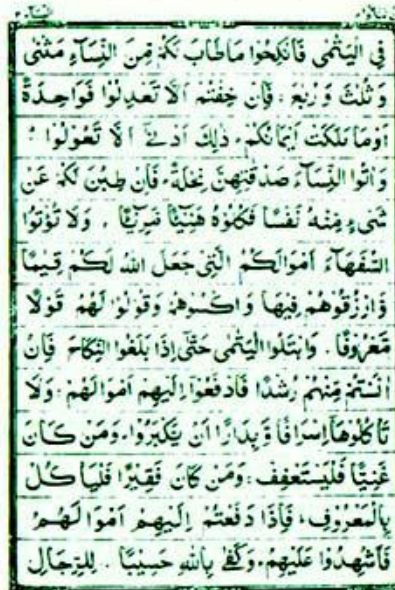 النساء ٤
فِي الْيَتٰمٰى فَانْكِحُوْا مَا طَابَ لَكُمْ مِّنَ النِّسَآءِ مَثْنٰى
وَ ثُلٰثَ وَ رُبٰعَ ۚ فَاِنْ خِفْتُمْ اَلَّا تَعْدِلُوْا فَوَاحِدَةً
اَوْمَا مَلَكَتْ اَيْمَانُكُمْ ۚ ذٰلِكَ اَدْنٰٓى اَلَّا تَعُوْلُوْا ؕ
وَ اٰتُوا النِّسَآءَ صَدُقٰتِهِنَّ نِحْلَةً ۚ فَاِنْ طِبْنَ لَكُمْ عَنْ
شَيْءٍ مِّنْهُ نَفْسًا فَكُلُوْهُ هَنِيْٓـًٔا مَّرِيْٓـًٔا ۔ وَلَا تُؤْتُوا
السُّفَهَآءَ اَمْوَالَكُمُ الَّتِيْ جَعَلَ اللّٰهُ لَكُمْ قِيٰمًا
وَّ ارْزُقُوْهُمْ فِيْهَا وَ اكْسُوْهُمْ وَ قُوْلُوْا لَهُمْ قَوْلًا
مَّعْرُوْفًا ۔ وَابْتَلُوا الْيَتٰمٰى حَتّٰٓى اِذَا بَلَغُوا النِّكَاحَ ۚ فَاِنْ
اٰنَسْتُمْ مِّنْهُمْ رُشْدًا فَادْفَعُوْٓا اِلَيْهِمْ اَمْوَالَهُمْ ۚ وَلَا
تَاْكُلُوْهَآ اِسْرَافًا وَّ بِدَارًا اَنْ يَّكْبَرُوْا ۚ وَمَنْ كَانَ
غَنِيًّا فَلْيَسْتَعْفِفْ ۚ وَمَنْ كَانَ فَقِيْرًا فَلْيَاْكُلْ
بِالْمَعْرُوْفِ ۚ فَاِذَا دَفَعْتُمْ اِلَيْهِمْ اَمْوَالَهُمْ
فَاَشْهِدُوْا عَلَيْهِمْ ۚ وَكَفٰى بِاللّٰهِ حَسِيْبًا ۔ لِلرِّجَالِ